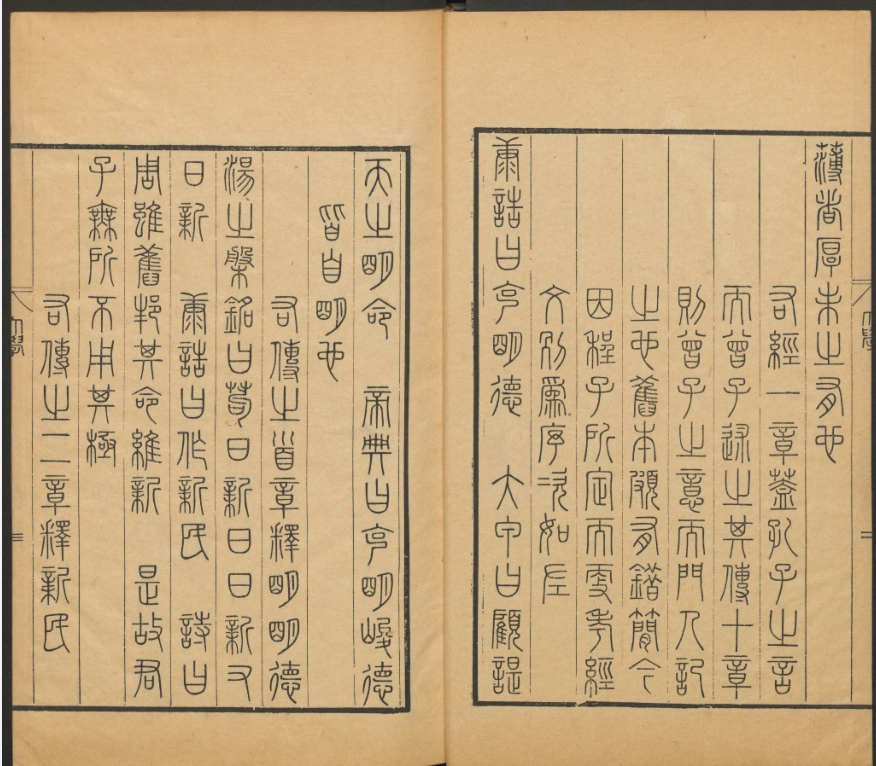 大學
薄者厚未之有也
右經一章蓋孔子之言
而曾子述之其傳十章
則曾子之意而門人記
之也舊本頗有錯簡今
因程子所定而更考經
文別爲序次如左
康誥曰克明德　大甲曰顧諟
天之明命　帝典曰克明峻德
皆自明也
右傳之首章釋明明德
湯之槃銘曰苟日新日日新又
日新　康誥曰作新民　詩曰
周雖舊邦其命維新　是故君
子無所不用其極
右傳之二章釋新民
大學
三